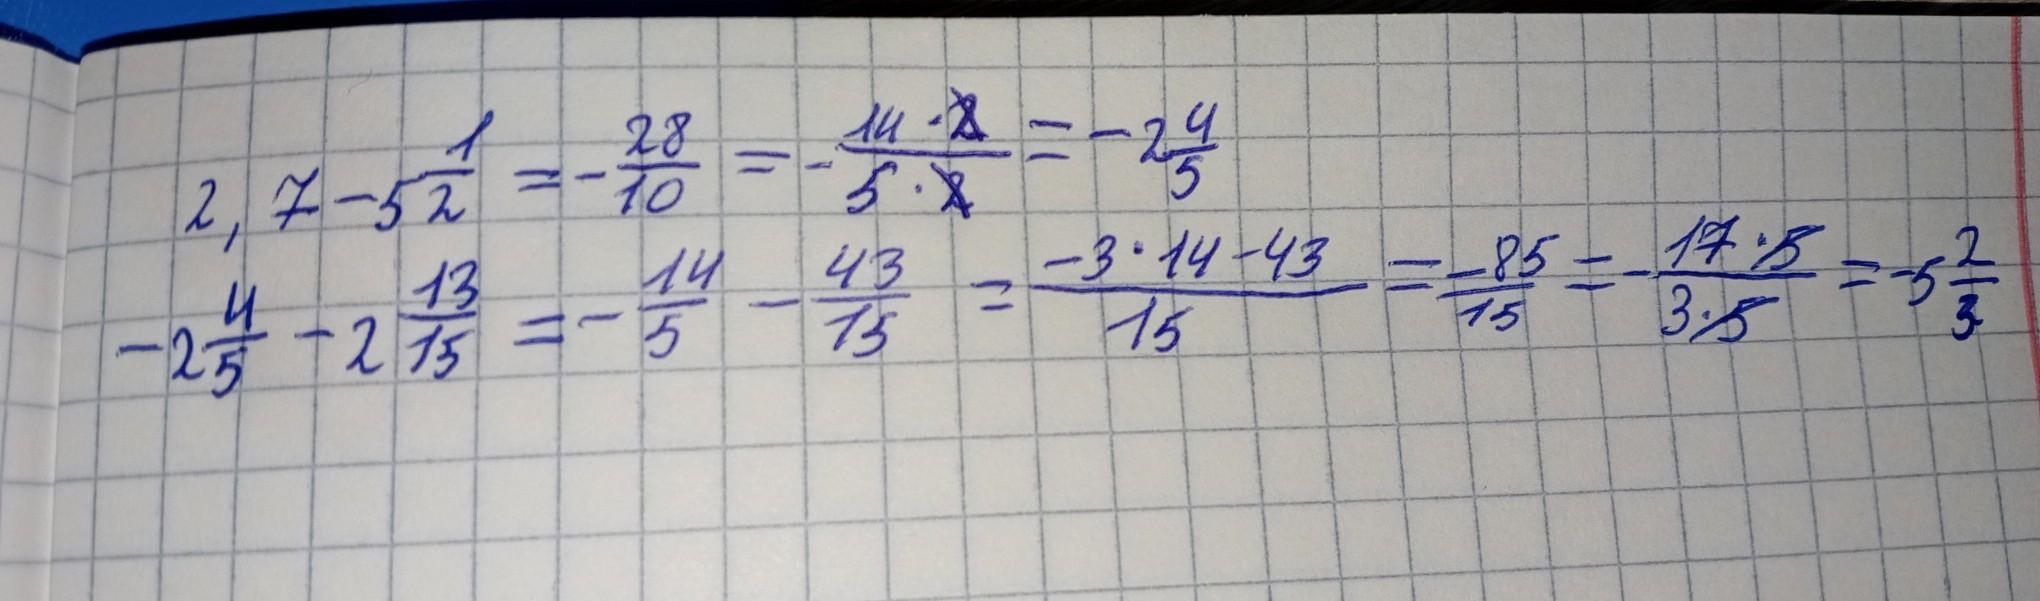 2,7 - 5 1/2 = - 28/10 = - 14·2/5·2 = - 2 4/5
-2 4/5 - 2 13/15 = - 14/5 - 43/15 = -3·14-43/15 = -85/15 = - 17·5/3·5 = -5 2/3